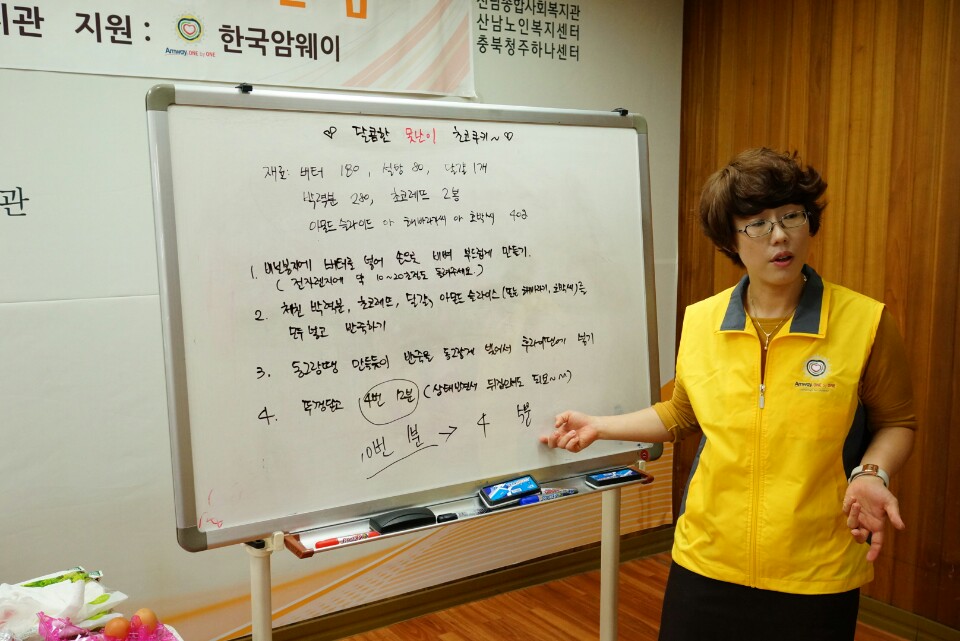 관 지원 : Amway ONE by ONE 한국암웨이
산남종합사회복지관
산남노인복지센터
충북청주하나센터
관
♡ 달콤한 못난이 초코쿠키~ ♡
재료: 버터 180, 설탕 80, 달걀 1개
박력분 280, 초코레뜨 2봉
아몬드 슬라이드 or 해바라기씨 or 호박씨 40g
1. 비닐봉지에 버터를 넣어 손으로 비벼 부드럽게 만들기.
( 전자렌지에 딱 10~20초정도 돌려주세요.)
2. 체친 박력분, 초코레뜨, 달걀, 아몬드 슬라이스 (또는 해바라기, 호박씨)를
모두 넣고 반죽하기
3. 동그랑땡 만들듯이 반죽을 동그랗게 빚어서 후라이팬에 넣기
4. 뚜껑덮고 4번 12분 (상태보면서 뒤집어줘도 되요~~)
10번 1분 → 4
Amway ONE by ONE